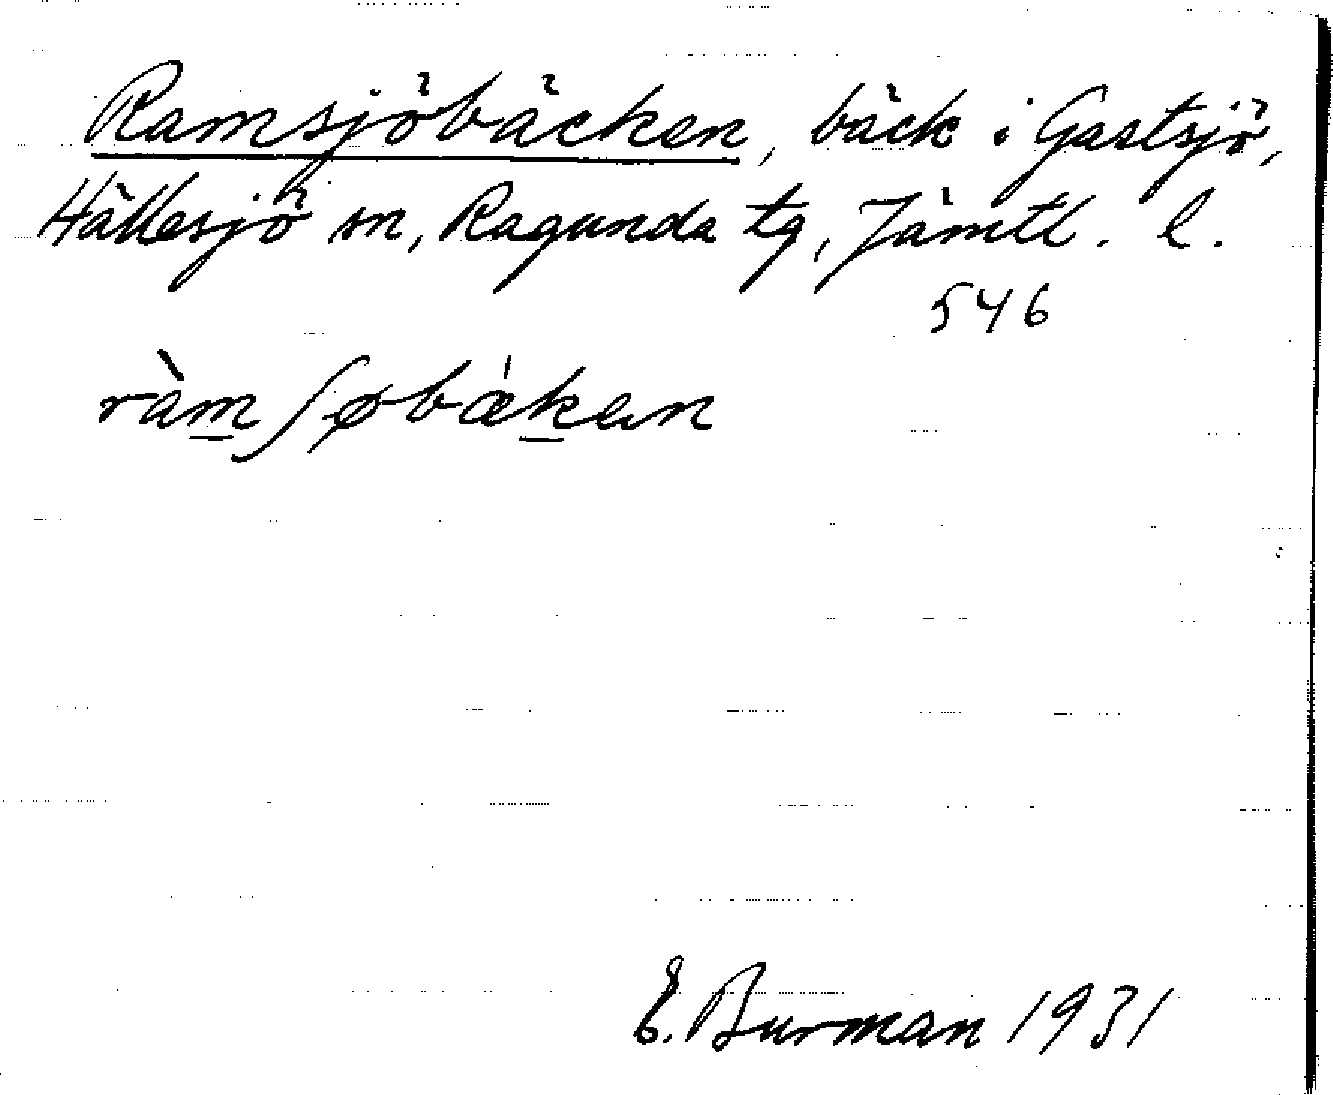 Ramsjöbäcken, bäck i Gastsjö,
Hällesjö sn, Ragunda tg, Jämtl. l.
546
ràm̲ʃøbæ̀k̲en
E. Burman 1931